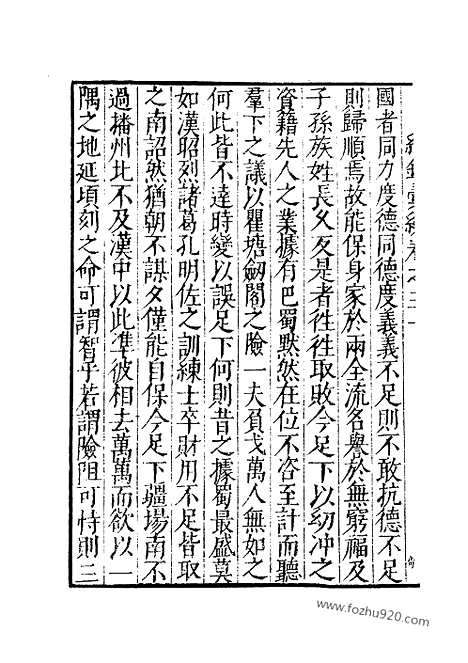 國者同力度德同德度義義不足則不敢抗德不足
則歸順焉故能保身家於兩全流名譽於無窮福及
子孫族姓長久反是者徃徃取敗今足下以幼冲之
資籍先人之業據有巴蜀默然在位不咨至計而聽
羣下之議以瞿塘劒閣之險一夫負戈萬人無如之
何此皆不達時變以誤足下何則昔之據蜀最盛莫
如漢昭烈諸葛孔明佐之訓練士卒財用不足皆取
之南詔然猶朝不謀夕僅能自保今足下疆場南不
過播州北不及漢中以此準彼相去萬萬而欲以一
隅之地延頃刻之命可謂智乎若謂險阻可恃則三
www.fozhu920.com